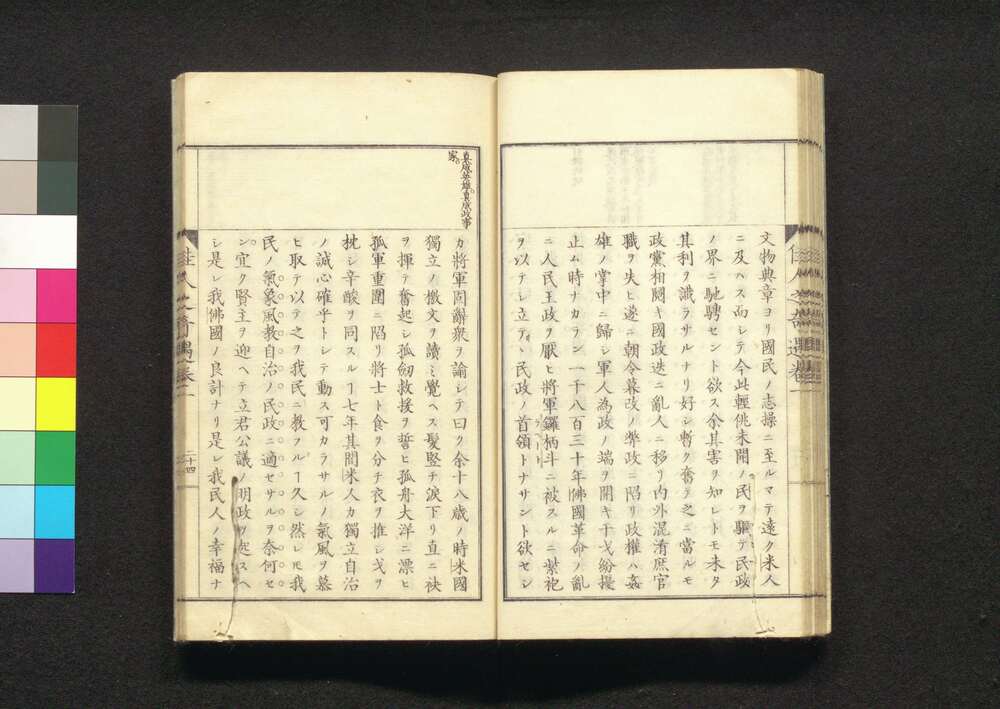 佳人之奇遇卷一
文物典章ヨリ國民ノ志操ニ至ルマテ遠ク米人
ニ及ハス而シテ今此輕佻未開ノ民ヲ驅テ民政
ノ界ニ馳騁セント欲ス余其害ヲ知レトモ未タ
其利ヲ識ラサルナリ好シ暫ク奮テ之ニ當ルモ
政黨相鬩キ國政迭ニ亂人ニ移リ内外混淆庶官
職ヲ失ヒ遂ニ朝令暮改ノ弊政ニ陷リ政權ハ姦
雄ノ掌中ニ歸シ軍人為政ノ端ヲ開キ干戈紛擾
止ム時ナカラン一千八百三十年佛國革命ノ亂
ニ人民王政ヲ厭ヒ將軍鑼柄斗ニ被スルニ紫袍
ヲ以テシ立テヽ民政ノ首領トナサント欲セシ
真成英雄真成政事
家
カ將軍固辭衆ヲ諭シテ曰ク余十八歳ノ時米國
獨立ノ檄文ヲ讀ミ覺ヘス髮竪チ淚下リ直ニ袂
ヲ揮テ奮起シ孤劒救援ヲ誓ヒ孤舟大洋ニ漂ヒ
孤軍重圍ニ陷リ將士ト食ヲ分チ衣ヲ推シ戈ヲ
枕シ辛酸ヲ同スルヿ七年其間米人カ獨立自治
ノ誠心確乎トシテ動ス可カラサルノ氣風ヲ慕
ヒ取テ以テ之ヲ我民ニ教フルヿ久シ然レモ我
民ノ氣象風教自治ノ民政ニ適セサルヲ奈何セ
ン宜ク賢主ヲ迎ヘテ立君公議ノ明政ヲ定スヘ
シ是レ我佛國ノ良計ナリ是レ我民人ノ幸福ナ
佳人之奇遇卷一
二十四